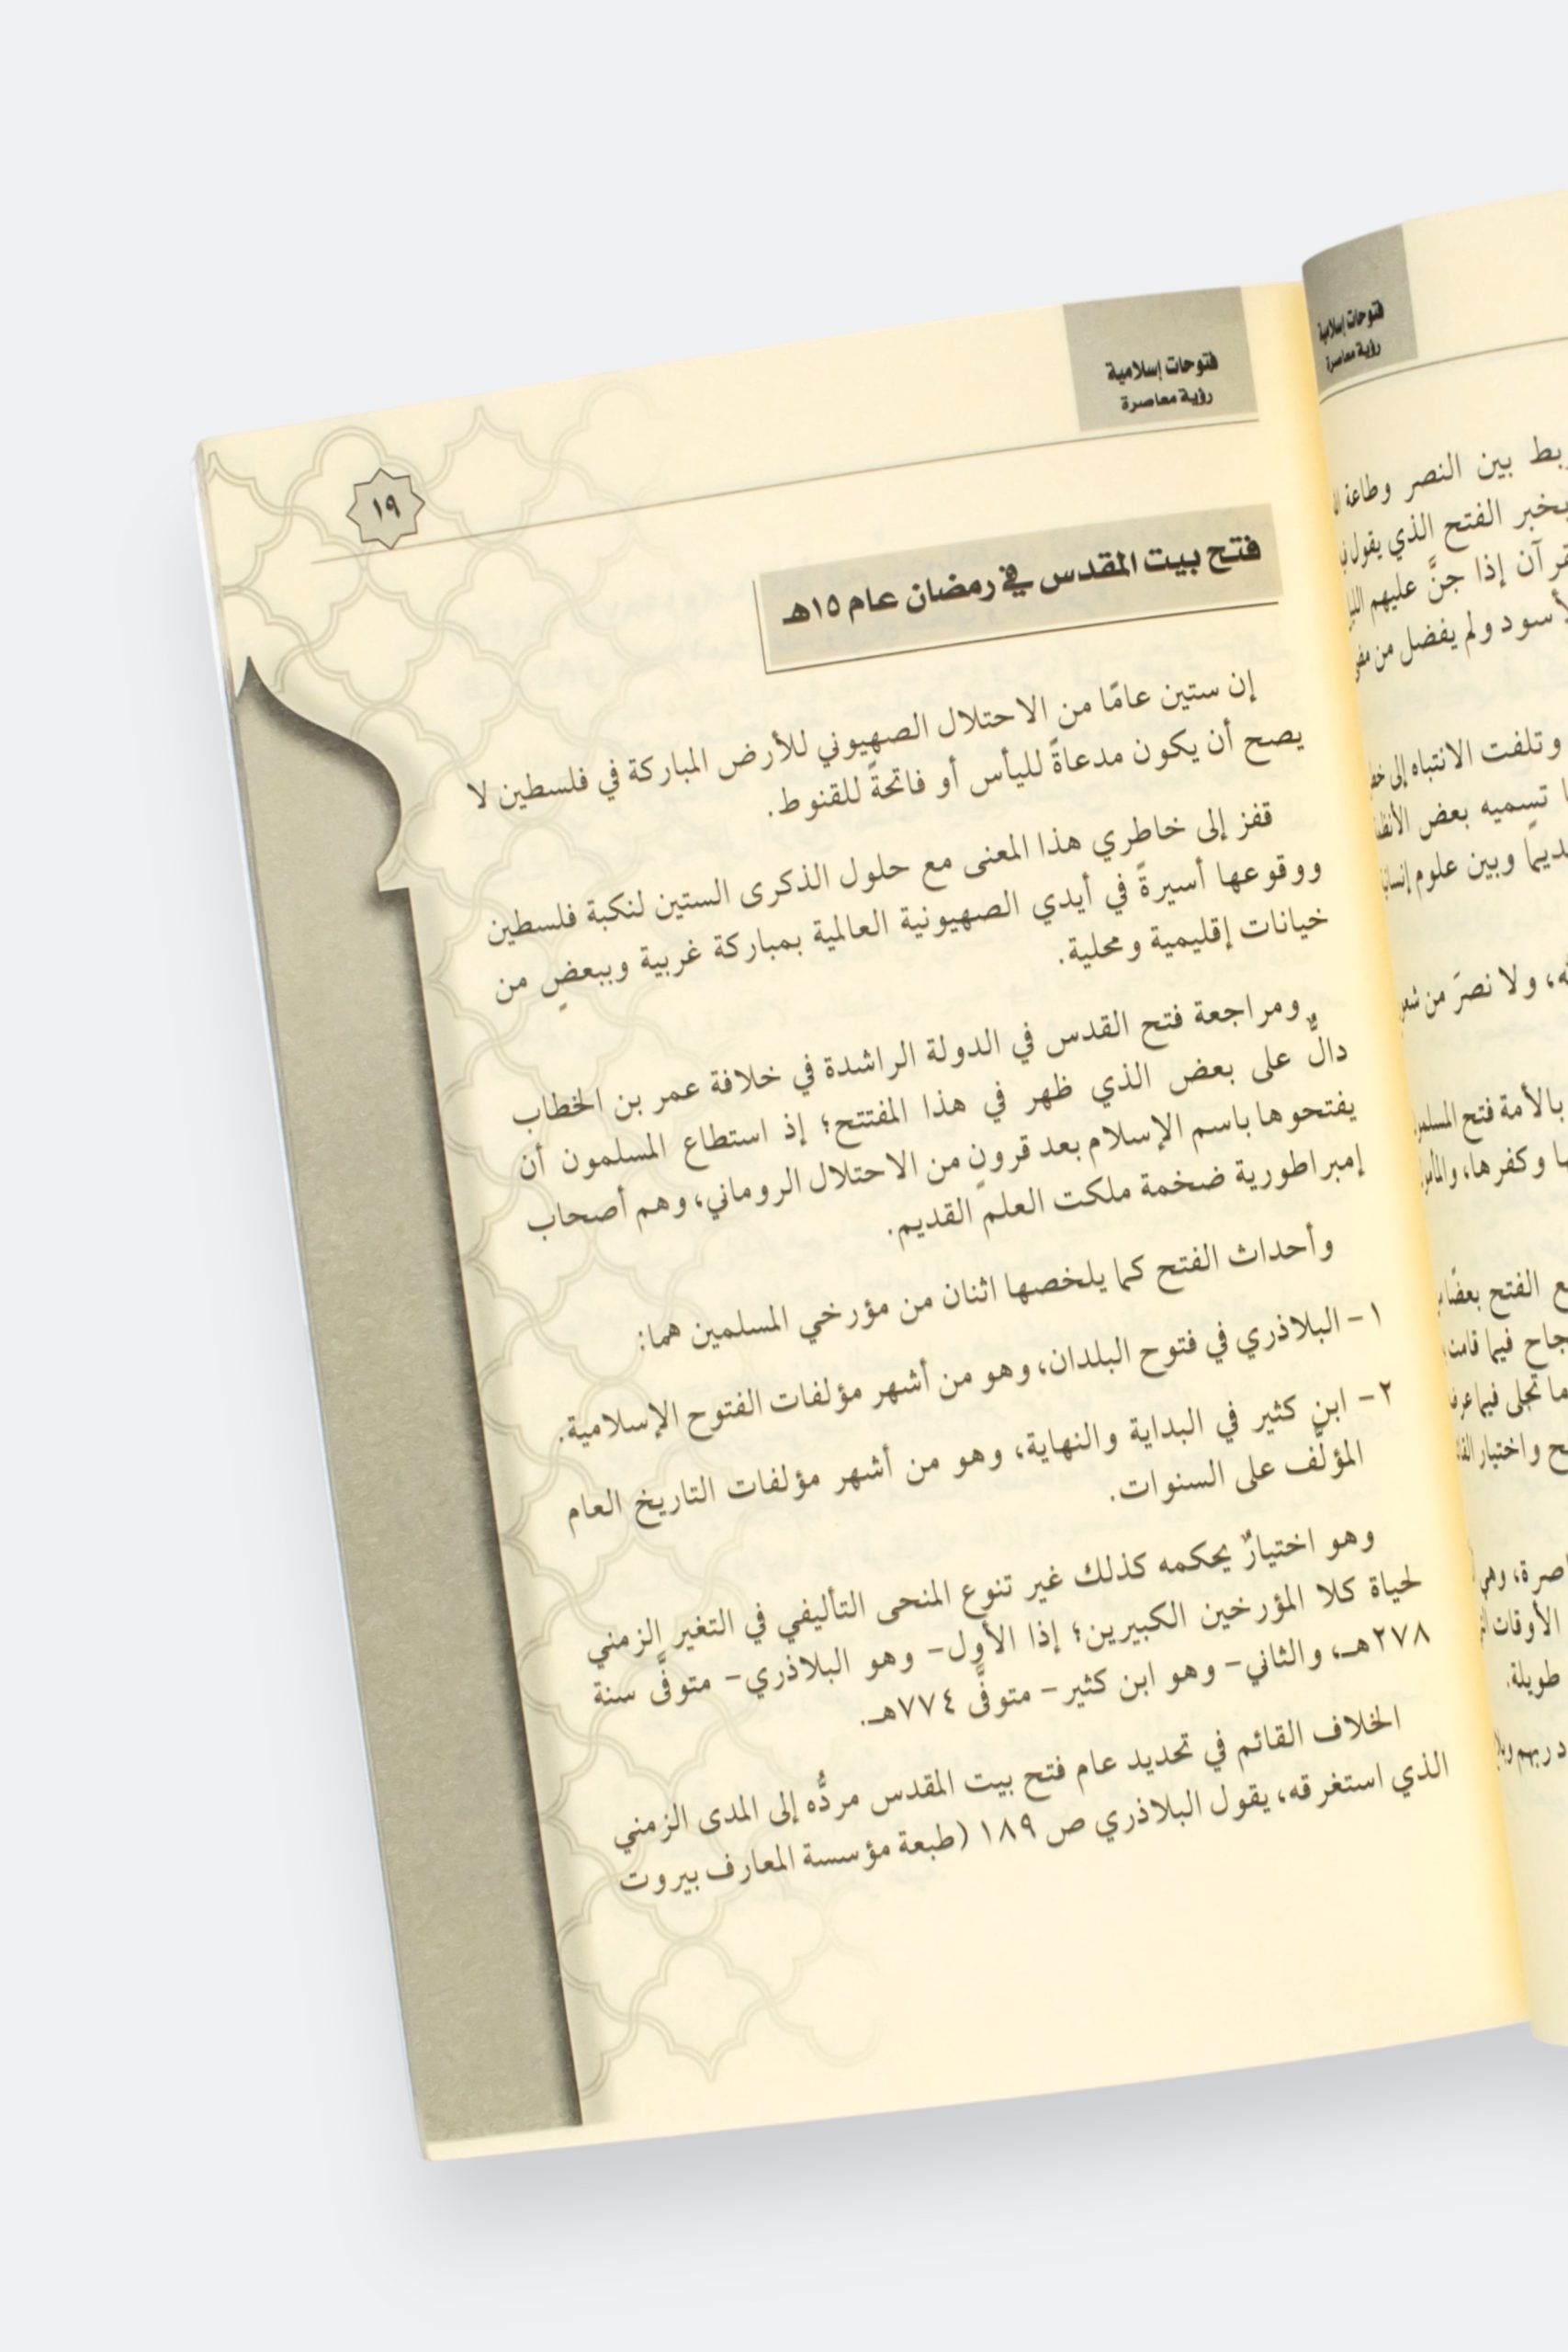 فتوحات إسلامية
رؤية معاصرة
١٩
فتح بيت المقدس في رمضان عام ١٥هـ
إن ستين عامًا من الاحتلال الصهيوني للأرض المباركة في فلسطين لا
يصح أن يكون مدعاةً لليأس أو فاتحةً للقنوط.
قفز إلى خاطري هذا المعنى مع حلول الذكرى الستين لنكبة فلسطين
ووقوعها أسيرةً في أيدي الصهيونية العالمية بمباركة غربية وببعضٍ من
خيانات إقليمية ومحلية.
ومراجعة فتح القدس في الدولة الراشدة في خلافة عمر بن الخطاب
دالٌّ على بعض الذي ظهر في هذا المفتتح؛ إذ استطاع المسلمون أن
يفتحوها باسم الإسلام بعد قرونٍ من الاحتلال الروماني، وهم أصحاب
إمبراطورية ضخمة ملكت العلم القديم.
وأحداث الفتح كما يلخصها اثنان من مؤرخي المسلمين هما:
١- البلاذري في فتوح البلدان، وهو من أشهر مؤلفات الفتوح الإسلامية.
٢- ابن كثير في البداية والنهاية، وهو من أشهر مؤلفات التاريخ العام
المؤلَّف على السنوات.
وهو اختيارٌ يحكمه كذلك غير تنوع المنحى التأليفي في التغير الزمني
لحياة كلا المؤرخين الكبيرين؛ إذا الأول- وهو البلاذري- متوفًّى سنة
٢٧٨هـ، والثاني- وهو ابن كثير- متوفًّى ٧٧٤هـ.
الخلاف القائم في تحديد عام فتح بيت المقدس مردُّه إلى المدى الزمني
الذي استغرقه، يقول البلاذري ص ١٨٩ (طبعة مؤسسة المعارف بيروت
فتوحات إسلامية
رؤية معاصرة
بين النصر وطاعة
الفتح الذي يقول
إذا جنَّ عليهم
ولم يفضل من
وتلفت الانتباه إلى
تسميه بعض
وبين علوم
ولا نصرَ من
بالأمة فتح
وكفرها،
الفتح
فيما قامت
تجلى فيما
واختيار
وهي
الأوقات
طويلة.